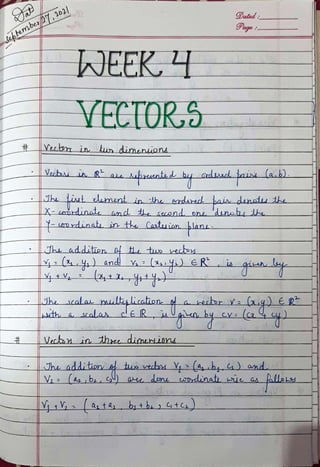 Sat
September 27, 2021
Dated :
Page :
WEEK 4
VECTORS
# Vectors in two dimensions
· Vectors in R² are represented by ordered pairs (a,b).
· The first element in the ordered pair denotes the
X-coordinate and the second one denotes the
Y-coordinate in the Cartesian plane.
· The addition of the two vectors
v₁ = (x₁, y₁) and v₂ = (x₂, y₂) ∈ R², is given by
v₁ + v₂ = (x₁ + x₂, y₁ + y₂)
· The scalar multiplication of a vector v = (x,y) ∈ R²
with a scalar c ∈ R, is given by cv = (cx, cy)
# Vectors in three dimensions
· The addition of two vectors V₁ = (a₁, b₁, c₁) and
V₂ = (a₂, b₂, c₂) are done coordinate wise as follows
V₁ + V₂ = (a₁ + a₂, b₁ + b₂, c₁ + c₂)